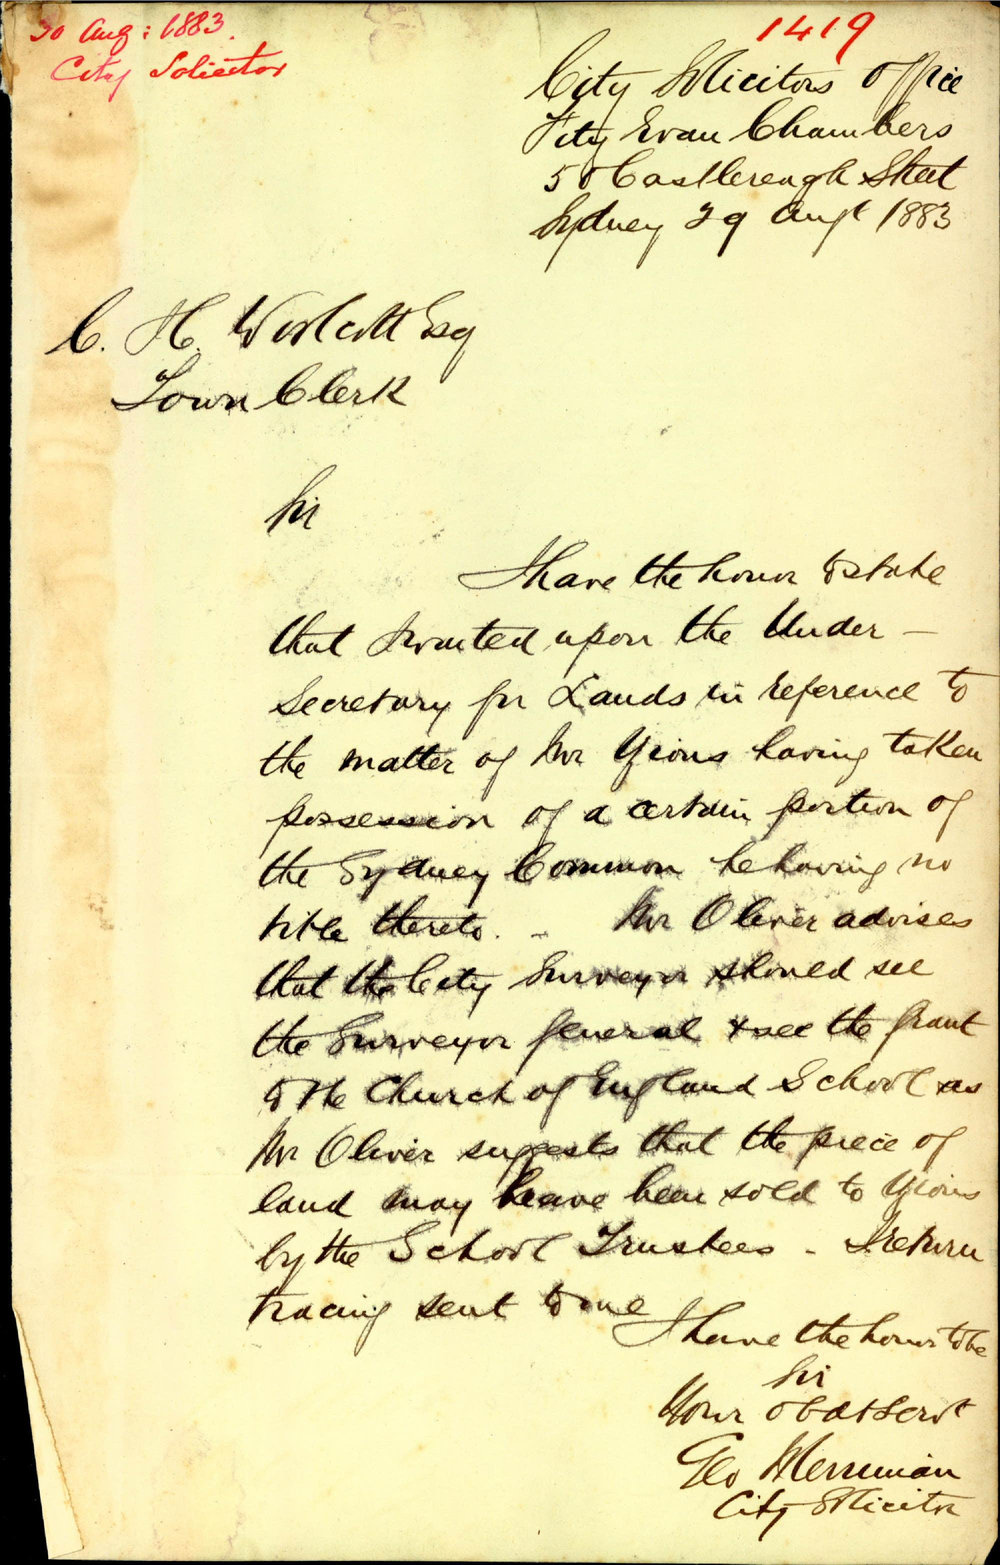 30 Aug: 1883.
City Solicitor
1419
City Solicitors Office
Fitz Evan Chambers
50 Castlereagh Street
Sydney 29 Augt 1883
C. H. Woolcott Esq
Town Clerk
Sir
I have the honor to state
that I waited upon the Under-
Secretary for Lands in reference to
the matter of Mr having taken
possession of a certain portion of
the Sydney Common he having no
title thereto. - Mr Oliver advises
that the City Surveyor should see
the Surveyor General & see the grant
to the Church of England School as
Mr Oliver suggests that the piece of
land may have been sold to
by the School Trustees - I return
tracing sent to me
I have the honor to be
Sir
Your Obdt Servt
Geo Merriman
City Solicitor